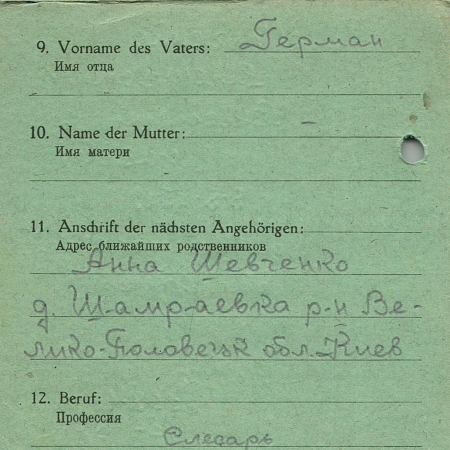 9. Vorname des Vaters: Герман
Имя отца
10. Name der Mutter:
Имя матери
11. Anschrift der nächsten Angehörigen:
Адрес ближайших родственников
Анна Шевченко
д. Шамраевка р-н Ве-
лико-Половецк обл. Киев
12. Beruf:
Профессия
Слесарь